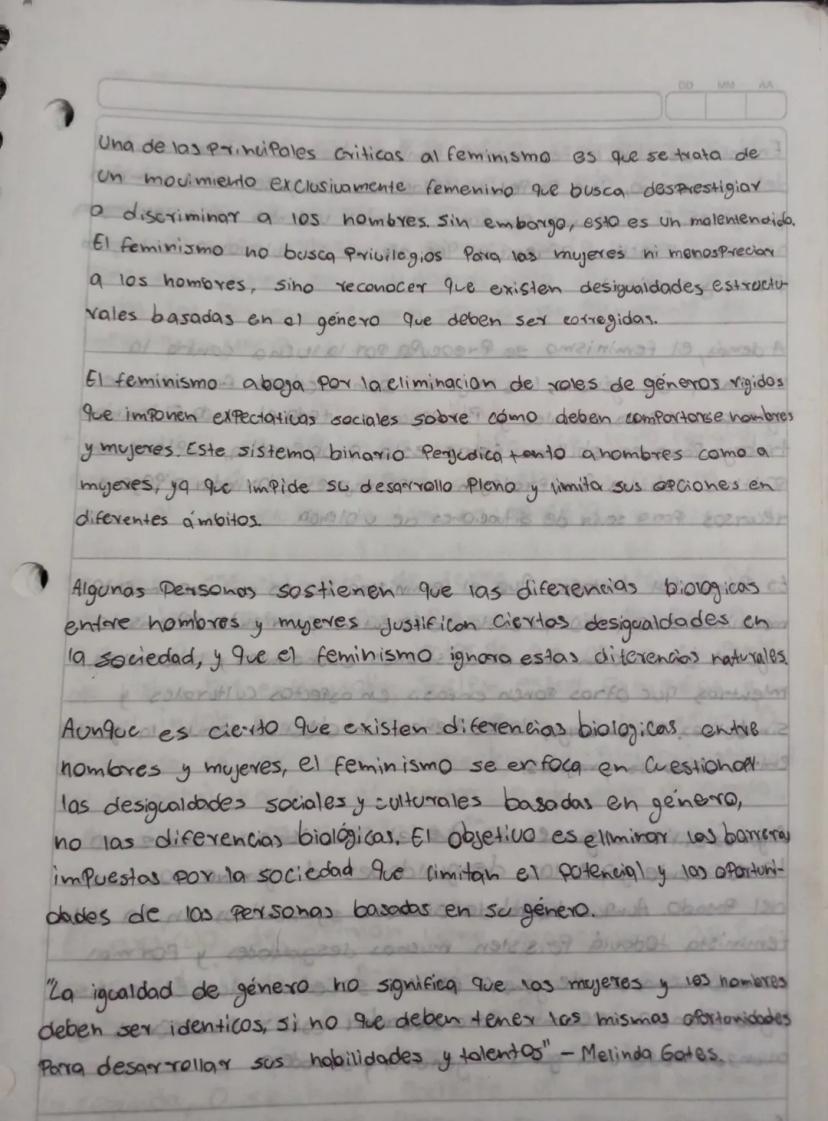 DD MM AA
Una de las principales criticas al feminismo es que se trata de
un movimiento exclusivamente femenino que busca desprestigiar
o discriminar a los hombres. sin embargo, esto es un malentendido.
El feminismo no busca privilegios para las mujeres ni menospreciar
a los hombres, sino reconocer que existen desigualdades estructu-
rales basadas en el género que deben ser corregidas.
El feminismo aboga por la eliminacion de roles de géneros rigidos
que imponen expectaticas sociales sobre cómo deben comportarse hombres
y mujeres. Este sistema binario perjudica tanto a hombres como a
mujeres, ya que impide su desarrollo pleno y limita sus opciones en
diferentes ámbitos.
Algunas personas sostienen que las diferencias biologicas
entre hombres y mujeres justifican ciertas desigualdades en
la sociedad, y que el feminismo ignora estas diferencias naturales.
Aunque es cierto que existen diferencias biologicas entre
hombres y mujeres, el feminismo se enfoca en cuestionar
las desigualdades sociales y culturales basadas en género,
no las diferencias biológicas. El objetivo es eliminar las barreras
impuestas por la sociedad que limitan el potencial y las oportuni-
dades de las personas basadas en su género.
"La igualdad de género no significa que las mujeres y los hombres
deben ser identicos, si no que deben tener las mismas oportunidades
para desarrollar sus habilidades y talentos" - Melinda Gates.